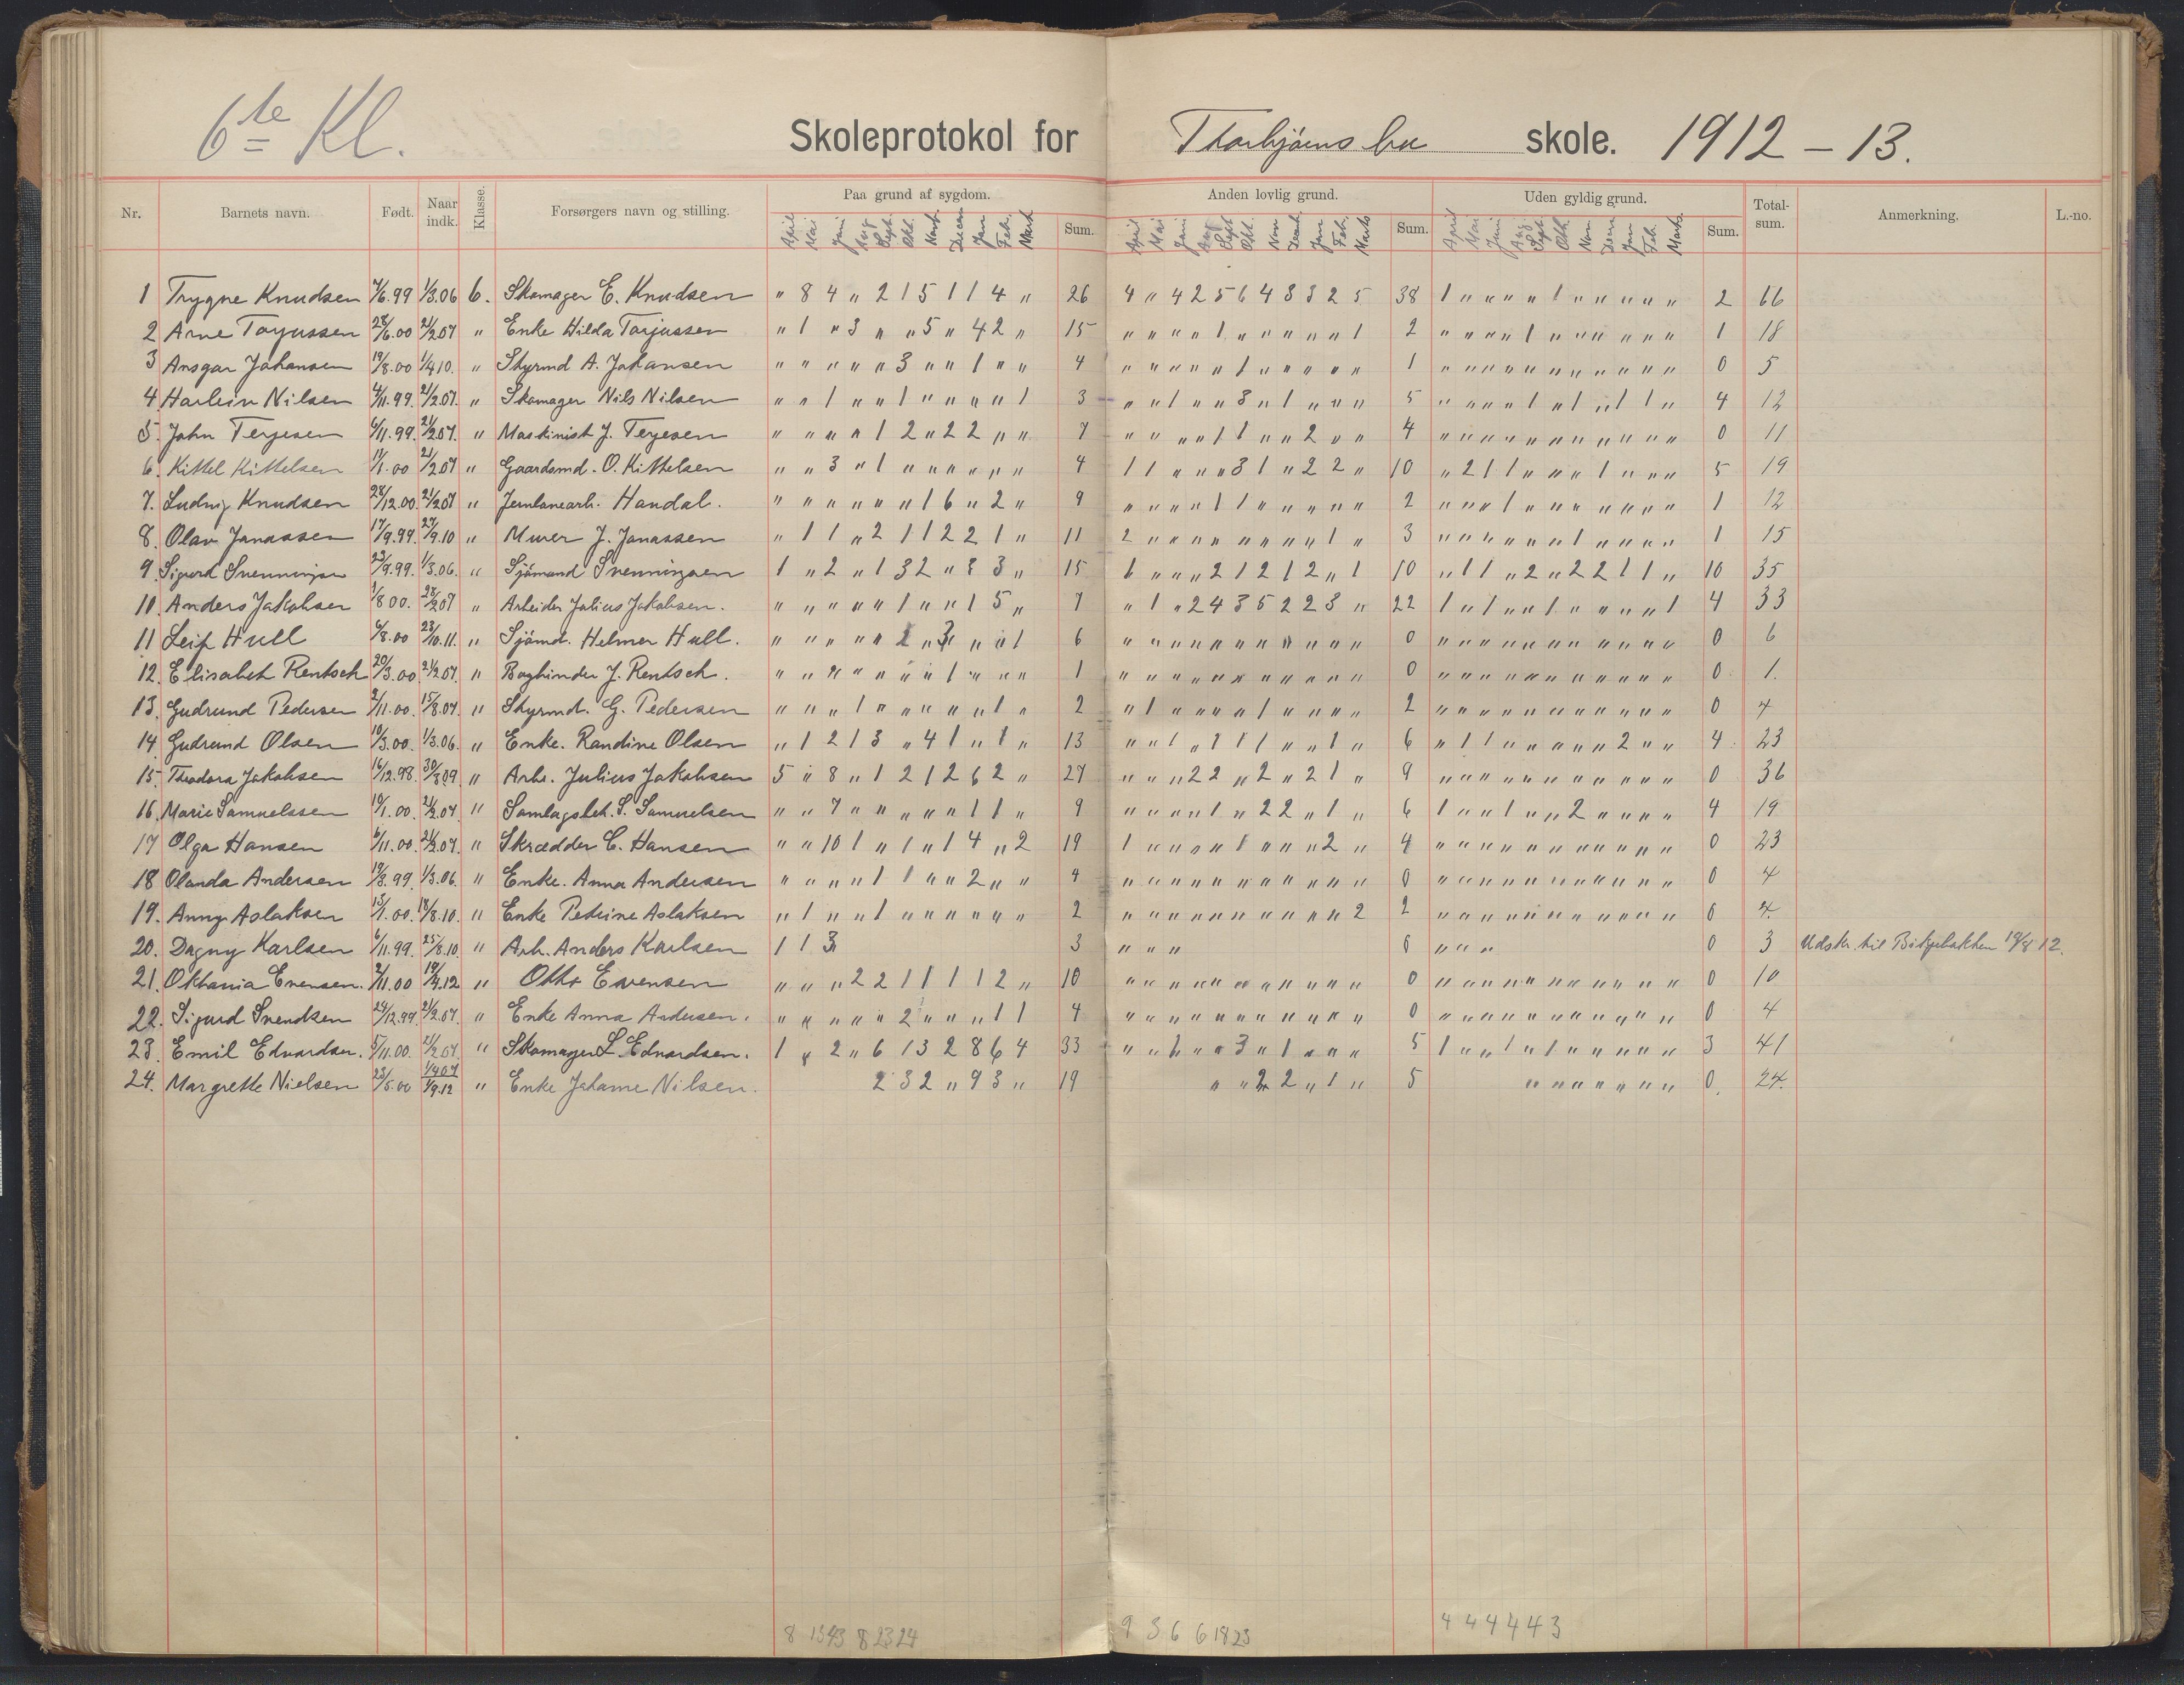 6te Kl.
Skoleprotokol for Thorbjørnsbu skole. 1912 – 13.
Nr. Barnets navn. Født. Naar indk. Klasse. Forsørgers navn og stilling. Paa grund af sygdom. Sum. Anden lovlig grund. Sum. Uden gyldig grund. Sum. Total-sum. Anmerkning. L.-no.
April Mai Juni Aug Sept. Okt. Novb. Decem Jan Feb. Mark April Mai Juni Aug Sept Okt. Nov Decemb. Jan Feb. Marts April Mai Juni Aug Sept. Okt. Nov Decem Jan Feb. Marts
1 Trygve Knudsen 4/6.99 1/3.06 6. Skomager E. Knudsen " 8 4 " 2 1 5 1 1 4 " 26 4 " 4 2 5 6 4 3 3 2 5 38 1 " " " " 1 " " " " " 2 66
2 Arne Torjussen 28/6.00 21/2.07 " Enke Hilda Torjussen " 1 " 3 " " 5 " 4 2 " 15 " " " " 1 " " " " " 1 2 " " " " 1 " " " " " " 1 18
3 Ansgar Johansen 19/8.00 1/4.10. " Styrmd A. Johansen " " " " " 3 " " 1 " " 4 " " " " " 1 " " " " " 1 " " " " " " " " " " " 0 5
4 Harlein Nilsen 4/11.99. 21/2.07. " Skomager Nils Nilsen " " 1 " " 1 " " " " 1 3 " " 1 " " 3 " 1 " " " 5 " " " " 1 " 1 " 1 1 " 4 12
5. John Terjesen 6/11.99. 21/2.07. " Maskinist J. Terjesen " " " " 1 2 " 2 2 " " 7 " " " " 1 1 " " 2 " " 4 " " " " " " " " " " " 0 11
6. Kittel Kittelsen 11/1.00 21/2.07 " Gaardsmd. O. Kittelsen " " 3 " 1 " " " " " " 4 1 1 " " " 3 1 " 2 2 " 10 " 2 1 1 " " " 1 " " " 5 19
7. Ludvig Knudsen 28/12.00. 21/2.07 " Jernbanearb. Handal. " " " " " " 1 6 " 2 " 9 " " " " 1 1 " " " " " 2 " " " 1 " " " " " " " 1 12
8. Olav Jonassen 17/9.99. 27/9.10 " Murer J. Jonassen " 1 1 " 2 1 1 2 2 1 " 11 2 " " " " " " " " 1 " 3 " " " " " " 1 " " " " 1 15
9. Sigurd Svenningsen 23/9.99. 1/3.06. " Sjømand Svenningsen 1 " 2 " 1 3 2 " 3 3 " 15 1 " " " 2 1 2 1 2 " 1 10 " 1 1 " 2 " 2 2 1 1 " 10 35
10. Anders Jakobsen 1/8.00. 28/2.07 " Arbeider Julius Jakobsen. " " " " " 1 " " 1 5 " 7 " 1 " 2 4 3 5 2 2 3 " 22 1 " 1 " " 1 " " " " 1 4 33
11 Leif Hull 4/8.00 23/10.11. " Sjømd. Helmer Hull. " " " " " 2 " 3 " " 1 6 " " " " " " " " " " " 0 " " " " " " " " " " " 0 6
12. Elisabet Rentsch 20/3.00. 21/2.07. " Bogbinder J. Rentsch. " " " " " " " 1 " " " 1 " " " " " " " " " " " 0 " " " " " " " " " " " 0. 1.
13. Gudrund Pedersen 2/11.00. 15/8.07. " Styrmd. G. Pedersen " " " 1 " " " " " 1 " 2 " 1 " " " " 1 " " " " 2 " " " " " " " " " " " 0 4
14 Gudrund Olsen 10/3.00. 1/3.06. " Enke. Randine Olsen " 1 2 1 3 " 4 1 " 1 " 13 " " 1 " 1 1 1 " " 1 " 6 " 1 1 " " " " " 2 " " 4. 23
15. Theodora Jakobsen 16/12.98. 30/3.09. " Arb. Julius Jakobsen 5 " 8 " 1 2 1 2 6 2 " 27 " " " 2 2 " 2 " 2 1 " 9 " " " " " " " " " " " 0 36
16. Marie Samuelssen 19/1.00. 21/2.07. " Samlagsbet. S. Samuelsen " " 7 " " " " " 1 1 " 9 " " " " 1 " 2 2 " 1 " 6 1 " " 1 " " 2 " " " " 4 19
17 Olga Hansen 6/11.00. 21/2.07. " Skrædder C. Hansen " " 10 1 " 1 " 1 4 " 2 19 1 " " " " 1 " " " 2 " 4 " " " " " " " " " " " 0 23
18 Olanda Andersen 19/3.99. 1/3.06. " Enke. Anna Andersen " " " " 1 1 " " 2 " " 4 " " " " " " " " " " " 0 " " " " " " " " " " " 0 4
19. Anny Aslaksen 13/1.00. 18/8.10. " Enke Petrine Aslaksen " 1 " " 1 " " " " " " 2 " " " " " " " " " " 2 2 " " " " " " " " " " " 0 4.
20. Dagny Karlsen 6/11.99. 25/8.10. " Arb. Anders Karlsen 1 1 3 3 " " " 0 " " " 0 3 Udskr. til 19/8 12.
21. Oktania Evensen. 2/11.00 19/4.12 " Otto Evensen " " " 2 2 1 1 1 1 2 " 10 " " " " " " " " " " " 0 " " " " " " " " " " " 0 10
22. Sigurd Svendsen 29/12.99. 21/2.07. " Enke Anna Andersen. " " " " " 2 " " " 1 1 4 " " " " " " " " " " " 0 " " " " " " " " " " " 0 4
23. Emil Edvardsen. 5/11.00. 21/2.07. " Skomager L. Edvardsen. 1 " 2 " 6 1 3 2 8 6 4 33 " " 1 " " 3 " 1 " " " 5 1 " " 1 " 1 " " " " " 3 41
24. Margrette Nielsen 23/5.00 1/4.07 1/9.12 " Enke Johanne Nilsen. 2 3 2 " 9 3 " 19 " " 2 2 " 1 " 5 " " " " " " " 0. 24.
8 13 43 8 23 24 9 3 6 6 18 23 4 4 4 4 4 3